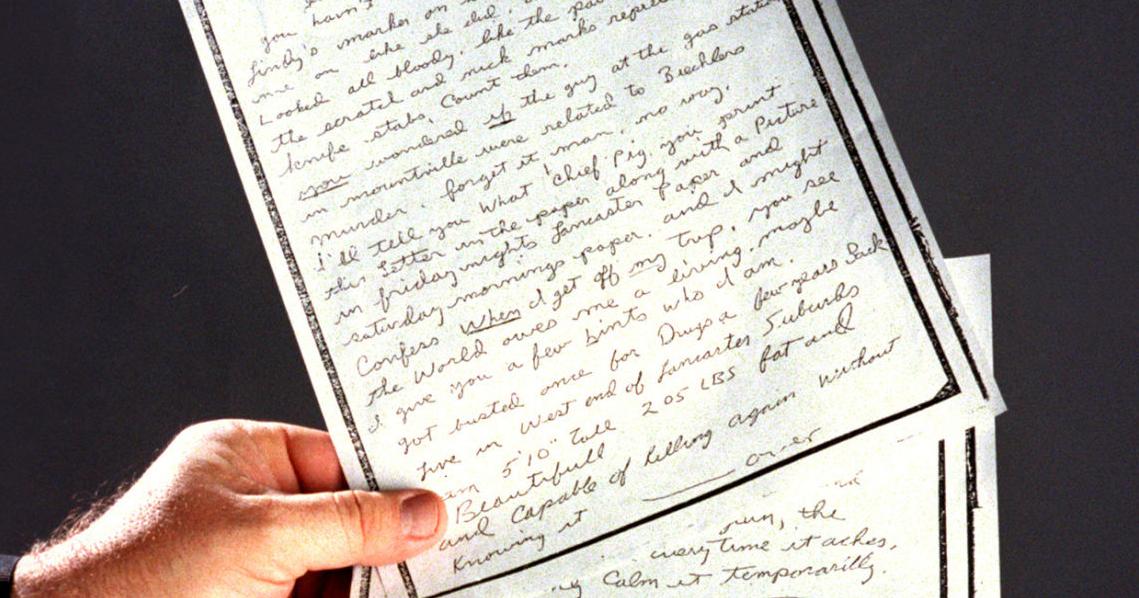 you havn't
Lindy's marker on
me on like she did,
Looked all bloody, like the
the scratch and nick marks
knife stabs, Count them.
you wondered if the guy at the gas station
in mountville were related to Beechlers
murder, forget it man, no way.
I'll tell you what "Chief Pig, you print
this Letter in the paper along with a Picture
in friday night's Lancaster paper and
saturday mornings paper, and I might
Confess When I get off my trip, you see
the World owes me a living, maybe
I give you a few hints who I am.
got busted once for Drugs a few years back
live in West end of Lancaster Suburbs
am 5'10" Tall 205 LBS fat and
Beautifull
and Capable of killing again Without
Knowing it over
run, the
everytime it aches,
Calm it temporarilly.